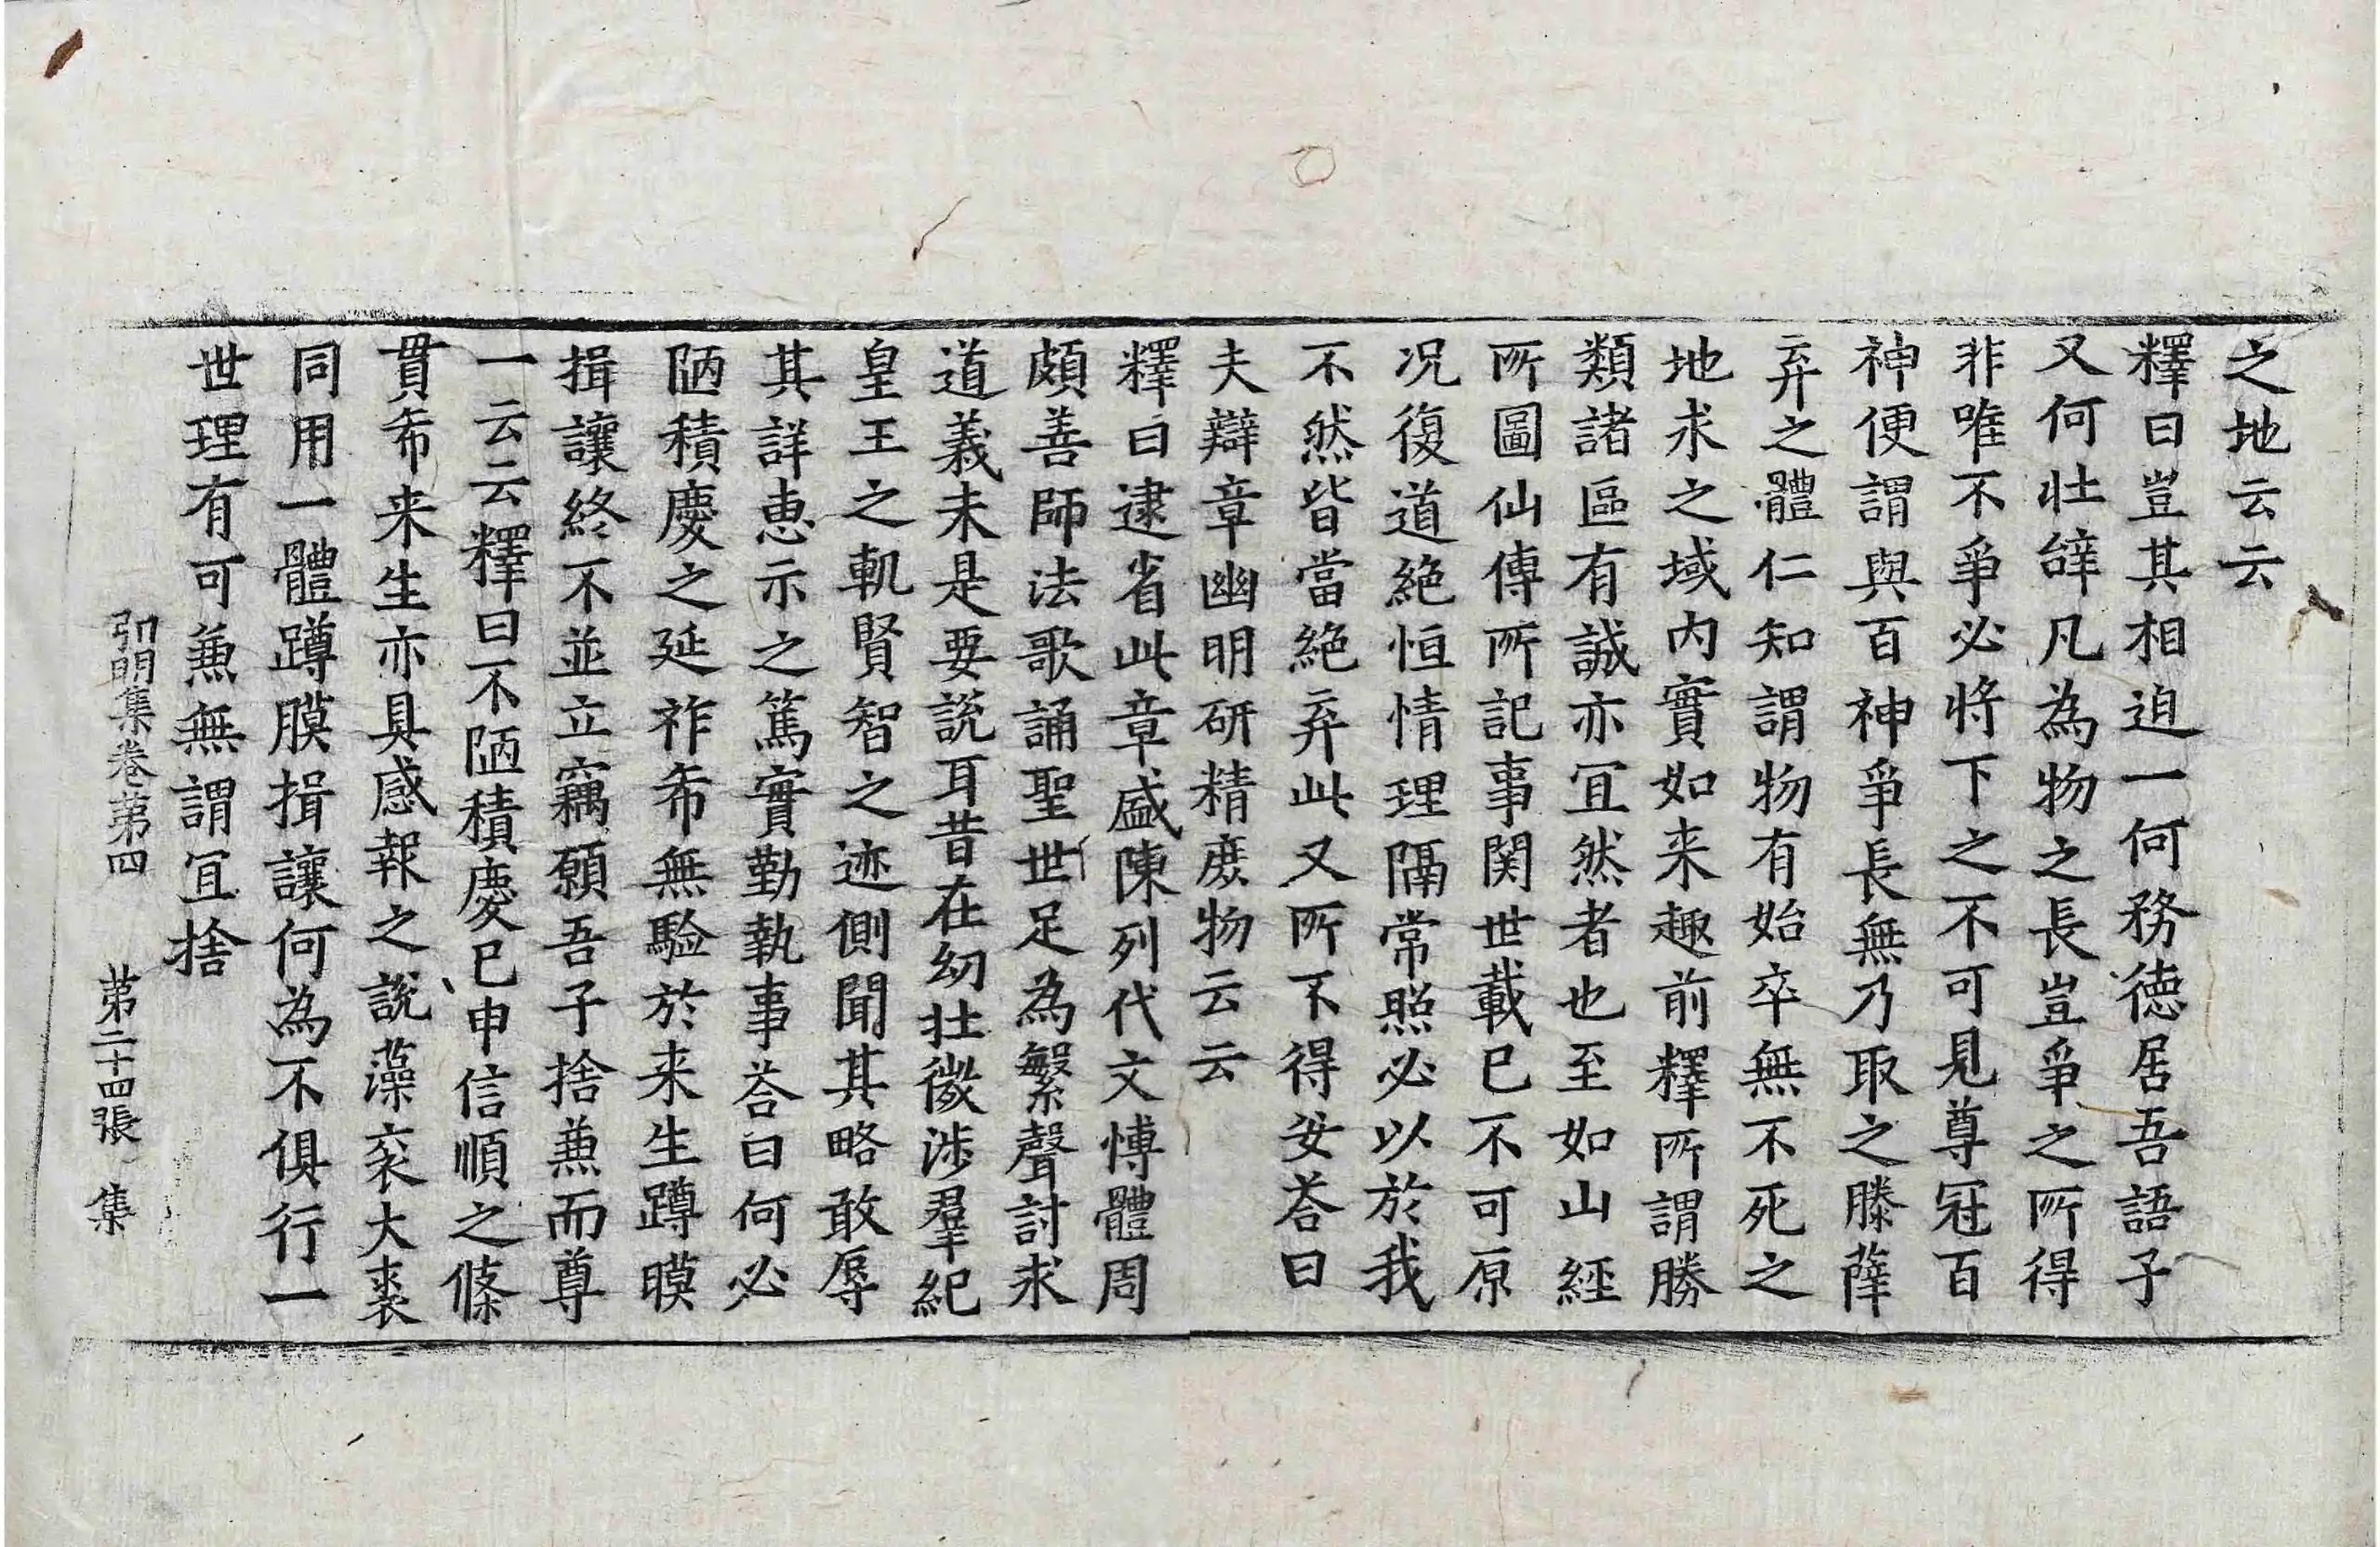 之地云云
釋曰豈其相迫一何務徳居吾語子
又何壮辝凡為物之長豈爭之所得
非唯不爭必將下之不可見尊冠百
神便謂與百神爭長無乃取之滕薛
弃之體仁知謂物有始卒無不死之
地求之域内實如来趣前釋所謂勝
類諸區有誠亦冝然者也至如山經
所圖仙傳所記事関世載已不可原
况復道絶恒情理隔常照必以於我
不然皆當絶弃此又所不得安荅曰
夫辯章幽明研精庶物云云
釋曰逮省此章盛陳列代文博體周
頗善師法歌誦聖世足為繁聲討求
道義未是要說耳昔在幼壮微涉羣紀
皇王之軌賢智之迹側聞其略敢辱
其詳恵示之篤實勤執事荅曰何必
陋積慶之延祚希無驗於来生蹲膜
揖讓終不並立竊願吾子捨兼而尊
一云云釋曰不陋積慶已申信順之條
貫希来生亦具感報之說藻衮大裘
同用一體蹲膜揖讓何為不俱行一
世理有可兼無謂冝捨
弘明集卷第四 第二十四張 集